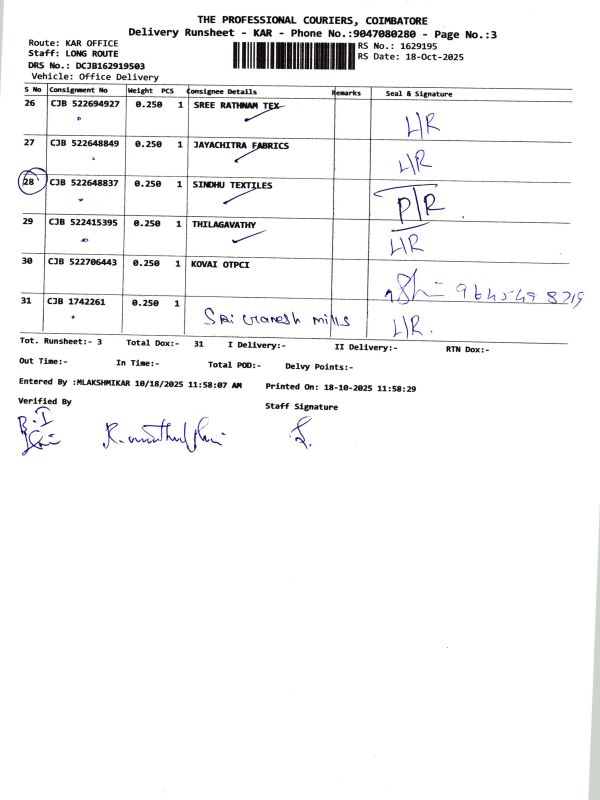 THE PROFESSIONAL COURIERS, COIMBATORE
Delivery Runsheet - KAR - Phone No.:9047080280 - Page No.:3
Route: KAR OFFICE
Staff: LONG ROUTE
DRS No.: DCJB162919503
Vehicle: Office Delivery
RS No.: 1629195
RS Date: 18-Oct-2025
S No Consignment No Weight PCS Consignee Details Remarks Seal & Signature
26 CJB 522694927 0.250 1 SREE RATHNAM TEX L/R
27 CJB 522648849 0.250 1 JAYACHITRA FABRICS L/R
28 CJB 522648837 0.250 1 SINDHU TEXTILES P/R
29 CJB 522415395 0.250 1 THILAGAVATHY L/R
30 CJB 522706443 0.250 1 KOVAI OTPCI
31 CJB 1742261 0.250 1 Sri Ganesh mills L/R.
Tot. Runsheet:- 3 Total Dox:- 31 I Delivery:- II Delivery:- RTN Dox:-
Out Time:- In Time:- Total POD:- Delvy Points:-
Entered By :MLAKSHMIKAR 10/18/2025 11:58:07 AM Printed On: 18-10-2025 11:58:29
Verified By Staff Signature